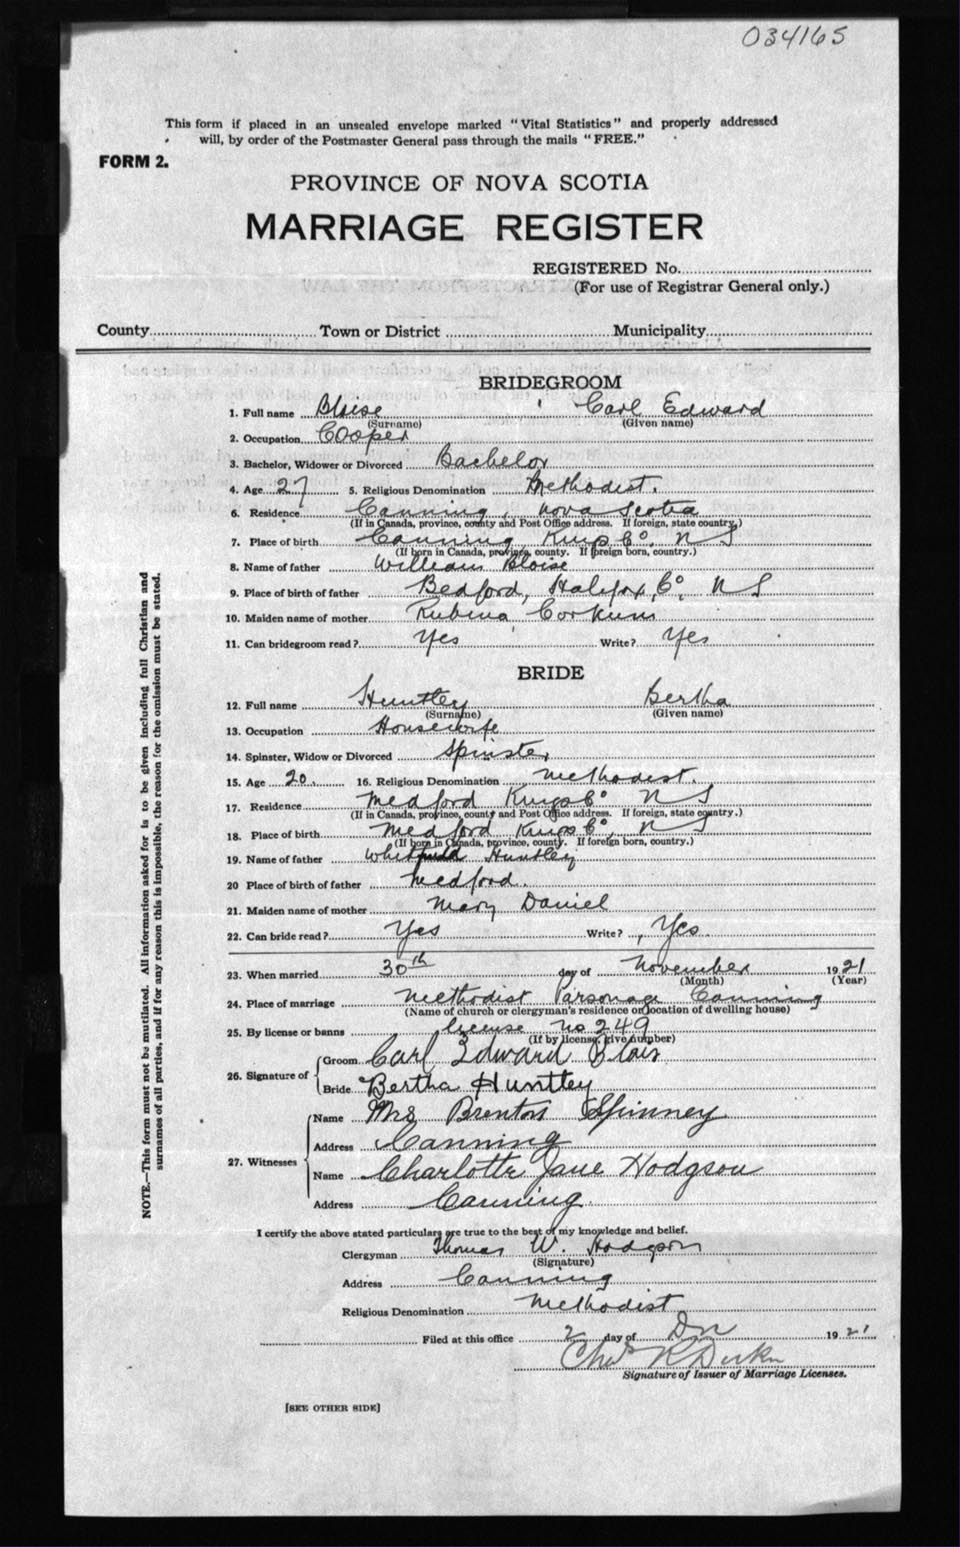 034165
This form if placed in an unsealed envelope marked "Vital Statistics" and properly addressed
will, by order of the Postmaster General pass through the mails "FREE."
FORM 2.
PROVINCE OF NOVA SCOTIA
MARRIAGE REGISTER
REGISTERED No.
(For use of Registrar General only.)
County Town or District Municipality
BRIDEGROOM
1. Full name Bloise Carl Edward
(Surname) (Given name)
2. Occupation Cooper
3. Bachelor, Widower or Divorced Bachelor
4. Age 27 5. Religious Denomination Methodist.
6. Residence Canning, Nova Scotia
(If in Canada, province, county and Post Office address. If foreign, state country.)
7. Place of birth Canning Kings Co. N S
(If born in Canada, province, county. If foreign born, country.)
8. Name of father William Bloise
9. Place of birth of father Bedford, Halifax, Co, N S
10. Maiden name of mother Rubina Corkum
11. Can bridegroom read? Yes Write? Yes
BRIDE
12. Full name Huntley Bertha
(Surname) (Given name)
13. Occupation Housewife
14. Spinster, Widow or Divorced Spinster
15. Age 20. 16. Religious Denomination Methodist.
17. Residence Medford Kings Co N S
(If in Canada, province, county and Post Office address. If foreign, state country.)
18. Place of birth Medford Kings Co, N S
(If born in Canada, province, county. If foreign born, country.)
19. Name of father Huntley
20 Place of birth of father Medford.
21. Maiden name of mother Mary Daniel
22. Can bride read? Yes Write? Yes
23. When married 30th day of November 1921
(Month) (Year)
24. Place of marriage Methodist Parsonage Canning
(Name of church or clergyman's residence or location of dwelling house)
25. By license or banns License no 249
(If by license, give number)
26. Signature of Groom Carl Edward Blois
Bride Bertha Huntley
27. Witnesses Name Mrs Brenton Spinney
Address Canning
Name Charlotte Jane Hodgson
Address Canning
I certify the above stated particulars are true to the best of my knowledge and belief.
Clergyman Thomas W. Hodgson
(Signature)
Address Canning
Religious Denomination Methodist
Filed at this office 2 day of 1921
Chas R
Signature of Issuer of Marriage Licenses.
[SEE OTHER SIDE]
NOTE.—This form must not be mutilated. All information asked for is to be given including full Christian and
surnames of all parties, and if for any reason this is impossible, the reason for the omission must be stated.